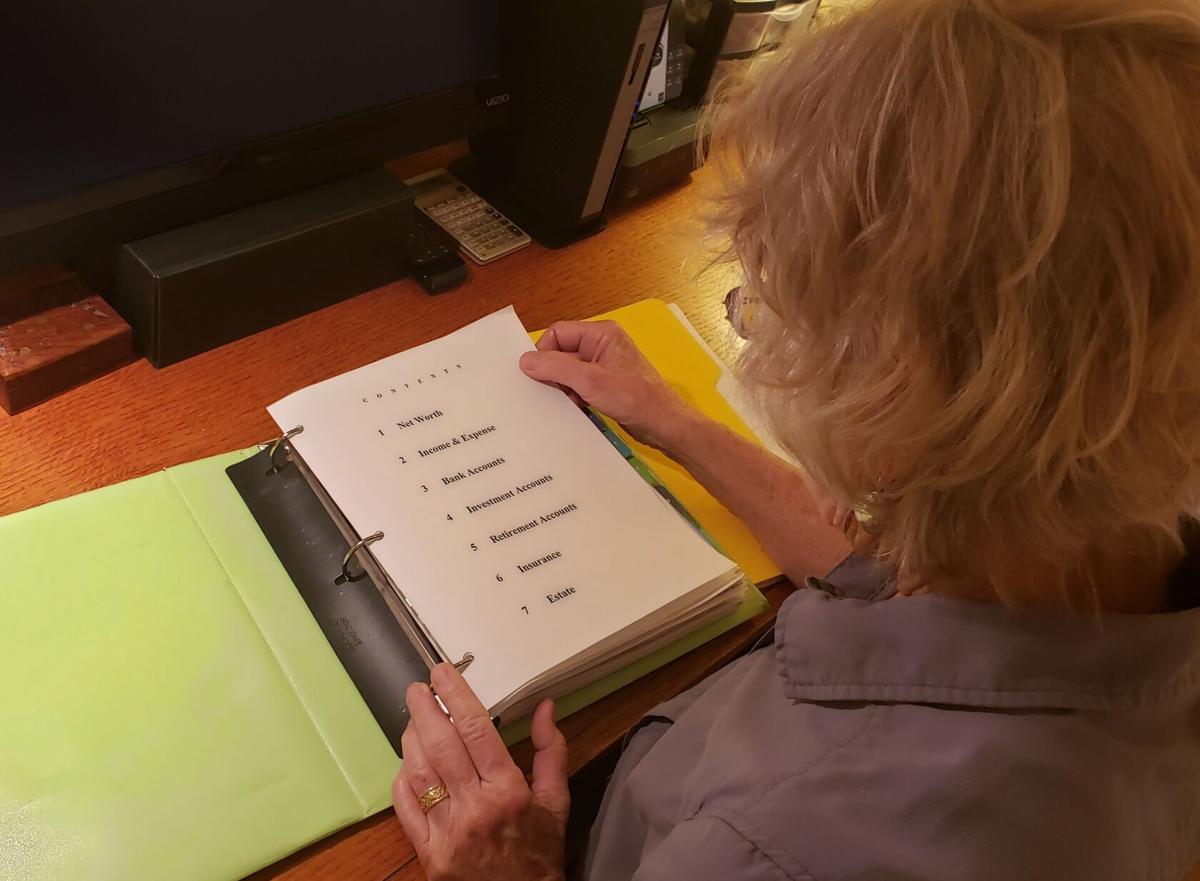 VIZIO
CONTENTS
1 Net Worth
2 Income & Expense
3 Bank Accounts
4 Investment Accounts
5 Retirement Accounts
6 Insurance
7 Estate